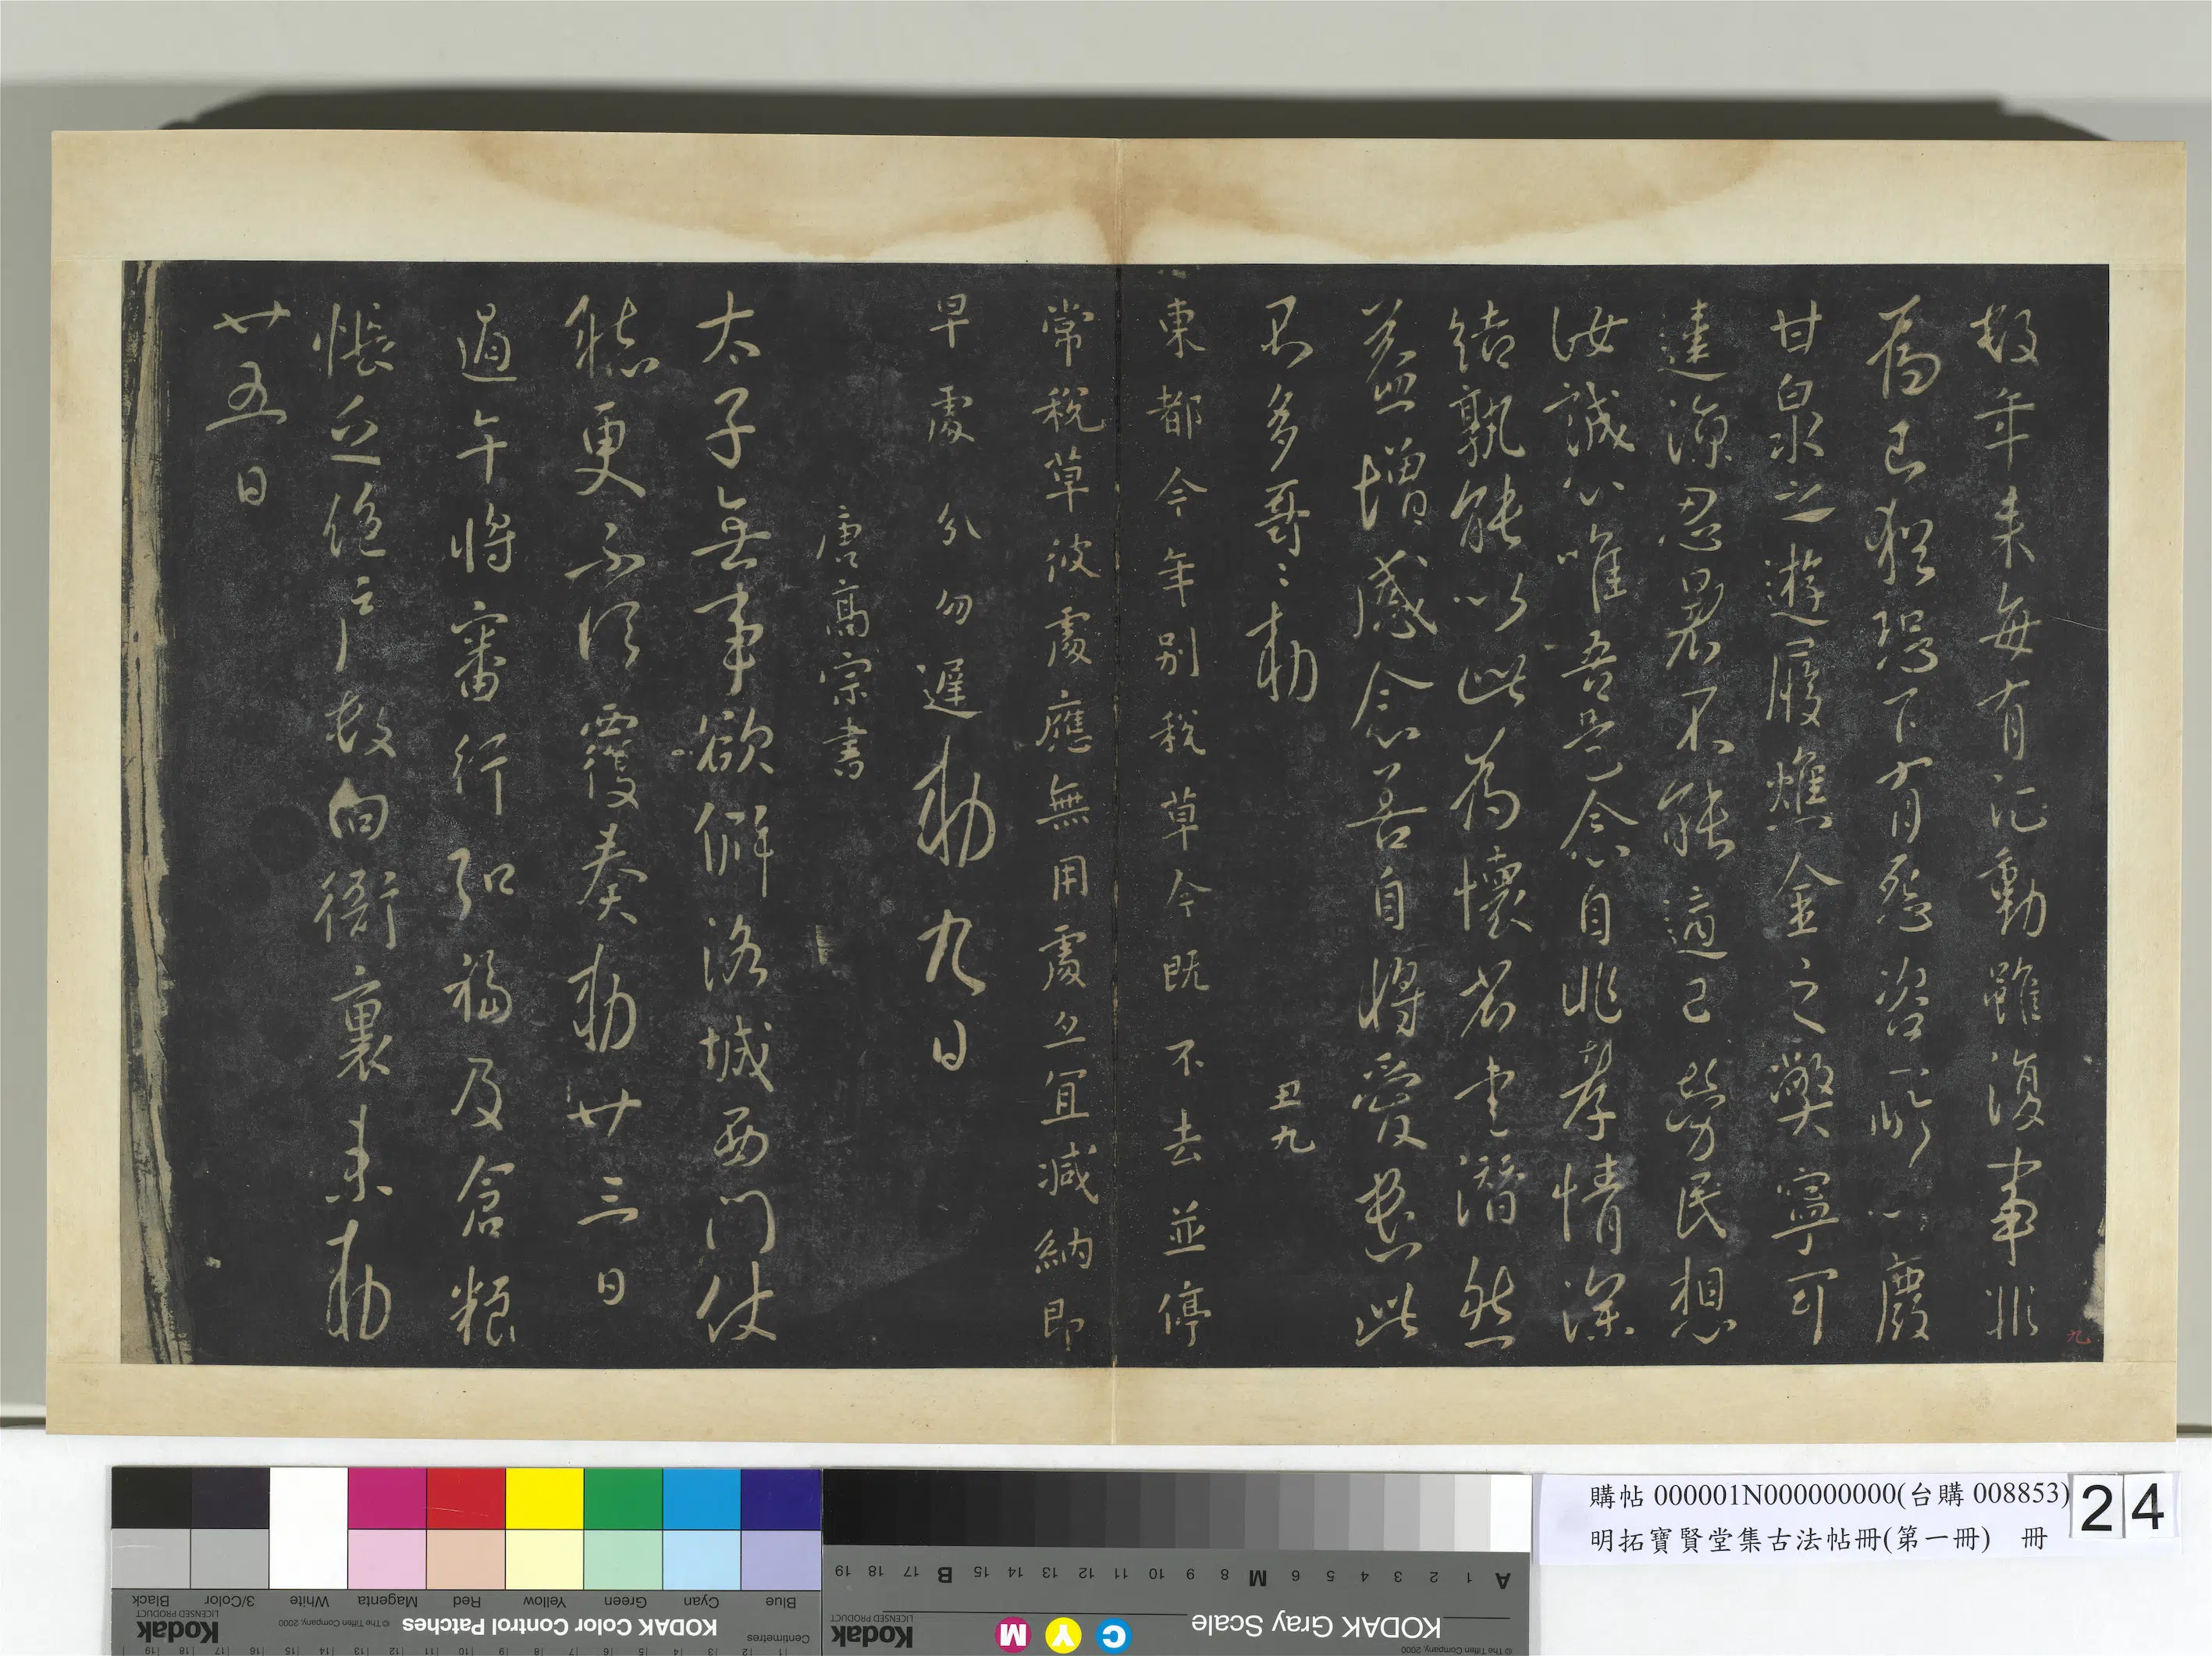 數年来每有氣動雖復事非
為己猶恐下有怨咨所以廢
甘泉之遊履燋金之弊寧可
違涼忍暑不能適己勞民想
汝誠心唯吾是念自非孝情深
結孰能以此為懷省書潸然
益增感念善自將愛遣此
不多哥〻勅
丑九
東都今年別稅草今既不去並停
常稅草彼處應無用處亦宜減納即
早處分勿遲勅九日
唐高宗書
太子無事欲解洛城西門仗
聽更不須覆奏勅廿三日
過午將審行弘福及倉粮
帳亡絕戶數向衙裏来勅
廿五日
九
購帖 000001N000000000(台購 008853)
明拓寶賢堂集古法帖冊(第一冊) 冊
24
KODAK Color Control Patches
Kodak
LICENSED PRODUCT
© The Tiffen Company, 2000
Centimetres
Blue Cyan Green Yellow Red Magenta White 3/Color Black
KODAK Gray Scale
C Y M
Kodak
LICENSED PRODUCT
© The Tiffen Company, 2000
A 1 2 3 4 5 6 M 8 9 10 11 12 13 14 15 B 17 18 19